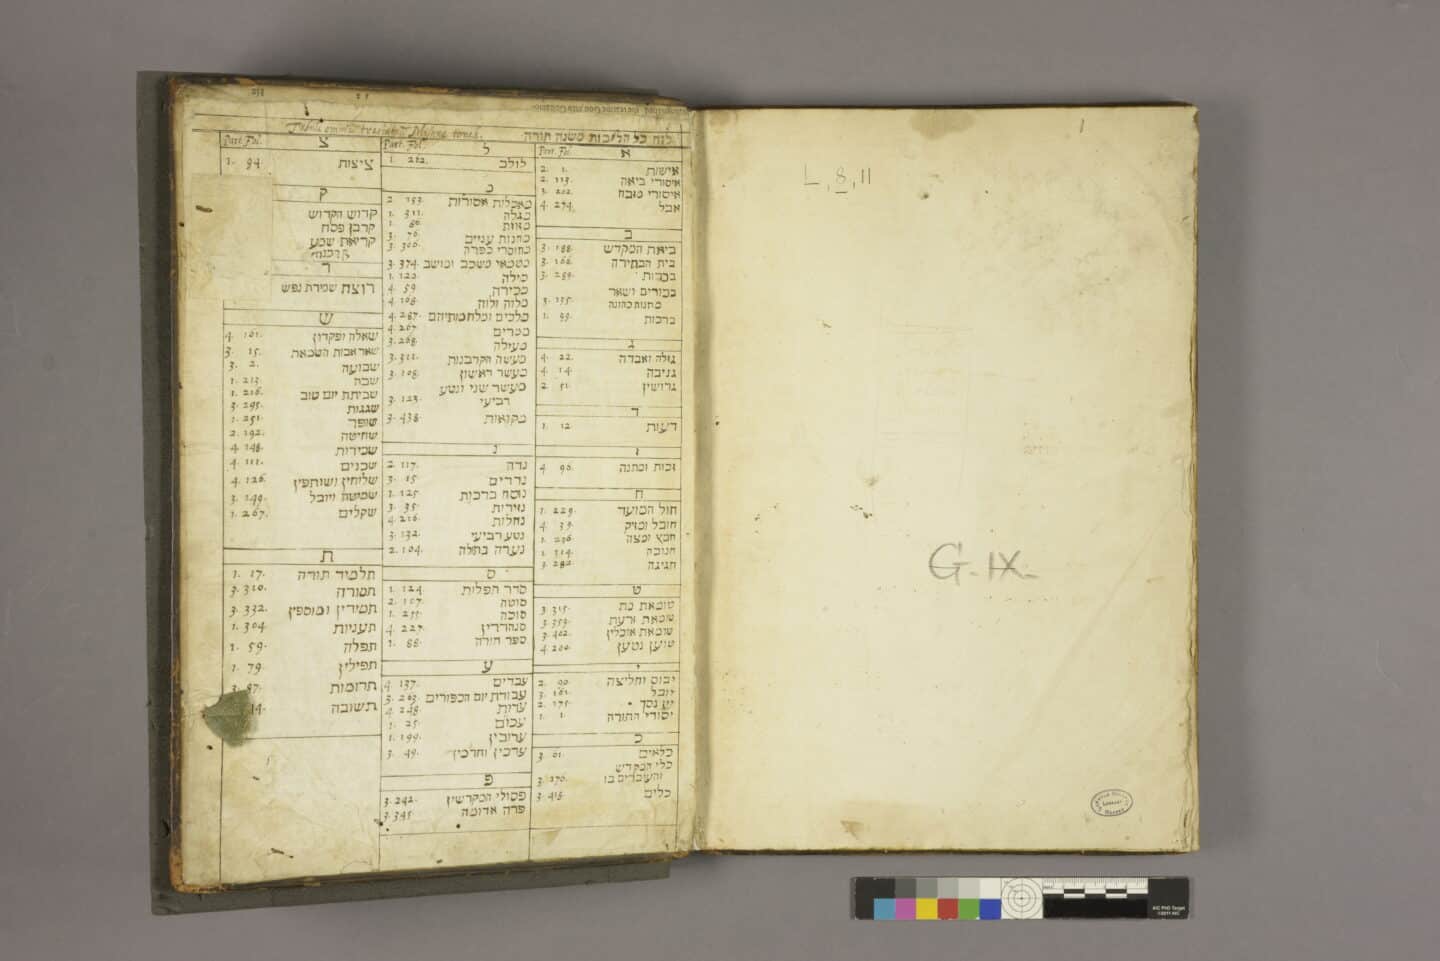 לוח כל הלכות משנה תורה
Part. Fol.
א
אישות 2. 1.
איסורי ביאה 2. 113.
איסורי מזבח 3. 202.
אבל 4. 274.
ב
ביאת המקדש 3. 188.
בית הבחירה 3. 166.
בכורות 3. 259.
בכורים ושאר
מתנות כהונה 3. 135.
ברכות 1. 99.
ג
גזלה ואבדה 4. 22.
גניבה 4. 14.
גרושין 2. 51.
ד
דעות 1. 12.
ז
זכות ומתנה 4. 96.
ח
חול המועד 1. 229.
חובל ומזיק 4. 39.
חמץ ומצה 1. 236.
חנוכה 1. 314.
חגיגה 3. 282.
ט
טומאת מת 3. 315.
טומאת צרעת 3. 353.
טומאת אוכלין 3. 402.
טוען ונטען 4. 200.
י
יבום וחליצה 2. 90.
יובל 3. 161.
יין נסך 2. 175.
יסודי התורה 1. 1.
כ
כלאים 3. 61.
כלי המקדש
והעובדים בו 3. 176.
כלים 3. 418.
Part. Fol.
ל
לולב 1. 262.
מ
מאכלות אסורות 2. 153.
מגלה 1. 311.
מזוזה 1. 86.
מתנות עניים 3. 76.
מחוסרי כפרה 3. 306.
מטמאי משכב ומושב 3. 374.
מילה 1. 120.
מכירה 4. 59.
מלוה ולוה 4. 168.
מלכים ומלחמותיהם 4. 287.
ממרים 4. 267.
מעילה 3. 268.
מעשה הקרבנות 3. 211.
מעשר ראשון 3. 108.
מעשר שני ונטע
רביעי 3. 123.
מקואות 3. 438.
נ
נדה 2. 117.
נדרים 3. 15.
נוסח ברכות 1. 125.
נזירות 3. 35.
נחלות 4. 216.
נטע רביעי 3. 132.
נערה בתולה 2. 104.
ס
סדר תפלות 1. 124.
סוטה 2. 107.
סוכה 1. 255.
סנהדרין 4. 227.
ספר תורה 1. 88.
ע
עבדים 4. 137.
עבודת יום הכפורים 3. 263.
עדות 4. 248.
עכום 1. 25.
ערובין 1. 199.
ערכין וחרמין 3. 49.
פ
פסולי המקדשין 3. 242.
פרה אדומה 3. 345.
Part. Fol.
צ
ציצות 1. 94.
ק
קדוש החדש
קרבן פסח
קריאת שמע
קרבנות
ר
רוצח שמירת נפש
ש
שאלה ופקדון 4. 161.
שאר אבות הטמאת 3. 15.
שבועה 3. 2.
שבת 1. 213.
שביתת יום טוב 1. 216.
שגגות 3. 295.
שופר 1. 251.
שחיטה 2. 192.
שכירות 4. 148.
שכנים 4. 111.
שלוחין ושותפין 4. 126.
שמיטה ויובל 3. 149.
שקלים 1. 267.
ת
תלמוד תורה 1. 17.
תמורה 3. 310.
תמידין ומוספין 3. 332.
תעניות 1. 304.
תפלה 1. 59.
תפילין 1. 79.
תרומות 3. 87.
תשובה 14.
1
L, 8, 11
G. IX.